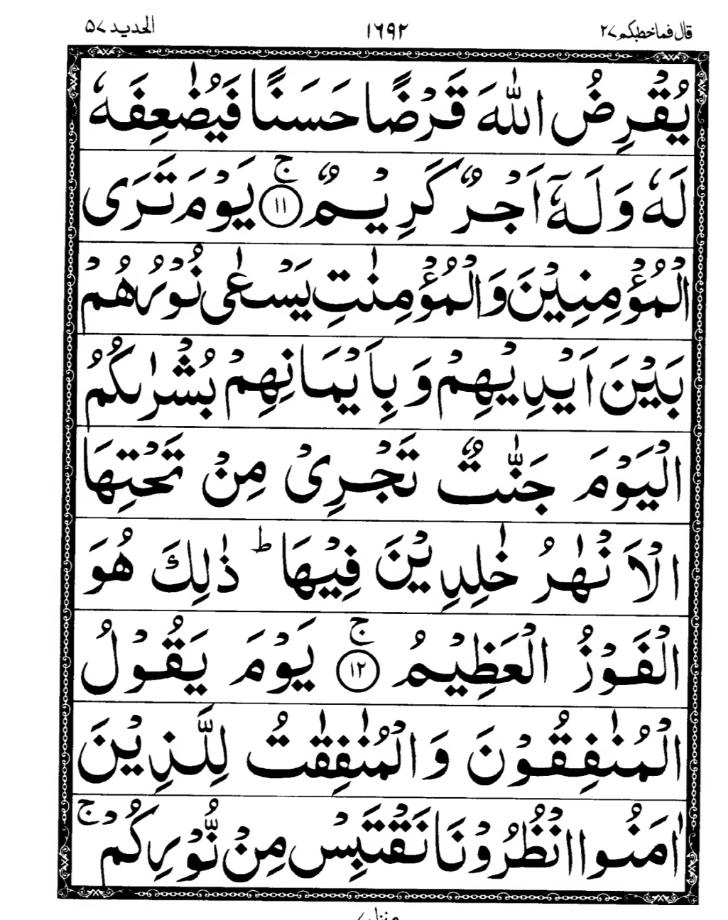 قال فماخطبکم ۲۷ ۱۶۹۲ الحدید ۵۷
یُقْرِضُ اللّٰهَ قَرْضًا حَسَنًا فَیُضٰعِفَهٗ
لَهٗ وَلَهٗۤ اَجْرٌ کَرِیْمٌ ۚ﴿۱۱﴾ یَوْمَ تَرَی
الْمُؤْمِنِیْنَ وَالْمُؤْمِنٰتِ یَسْعٰی نُوْرُهُمْ
بَیْنَ اَیْدِیْهِمْ وَ بِاَیْمَانِهِمْ بُشْرٰىکُمُ
الْیَوْمَ جَنّٰتٌ تَجْرِیْ مِنْ تَحْتِهَا
الْاَنْهٰرُ خٰلِدِیْنَ فِیْهَا ؕ ذٰلِکَ هُوَ
الْفَوْزُ الْعَظِیْمُ ۚ﴿۱۲﴾ یَوْمَ یَقُوْلُ
الْمُنٰفِقُوْنَ وَالْمُنٰفِقٰتُ لِلَّذِیْنَ
اٰمَنُوا انْظُرُوْنَا نَقْتَبِسْ مِنْ نُّوْرِکُمْ ۚ
منزل ۷